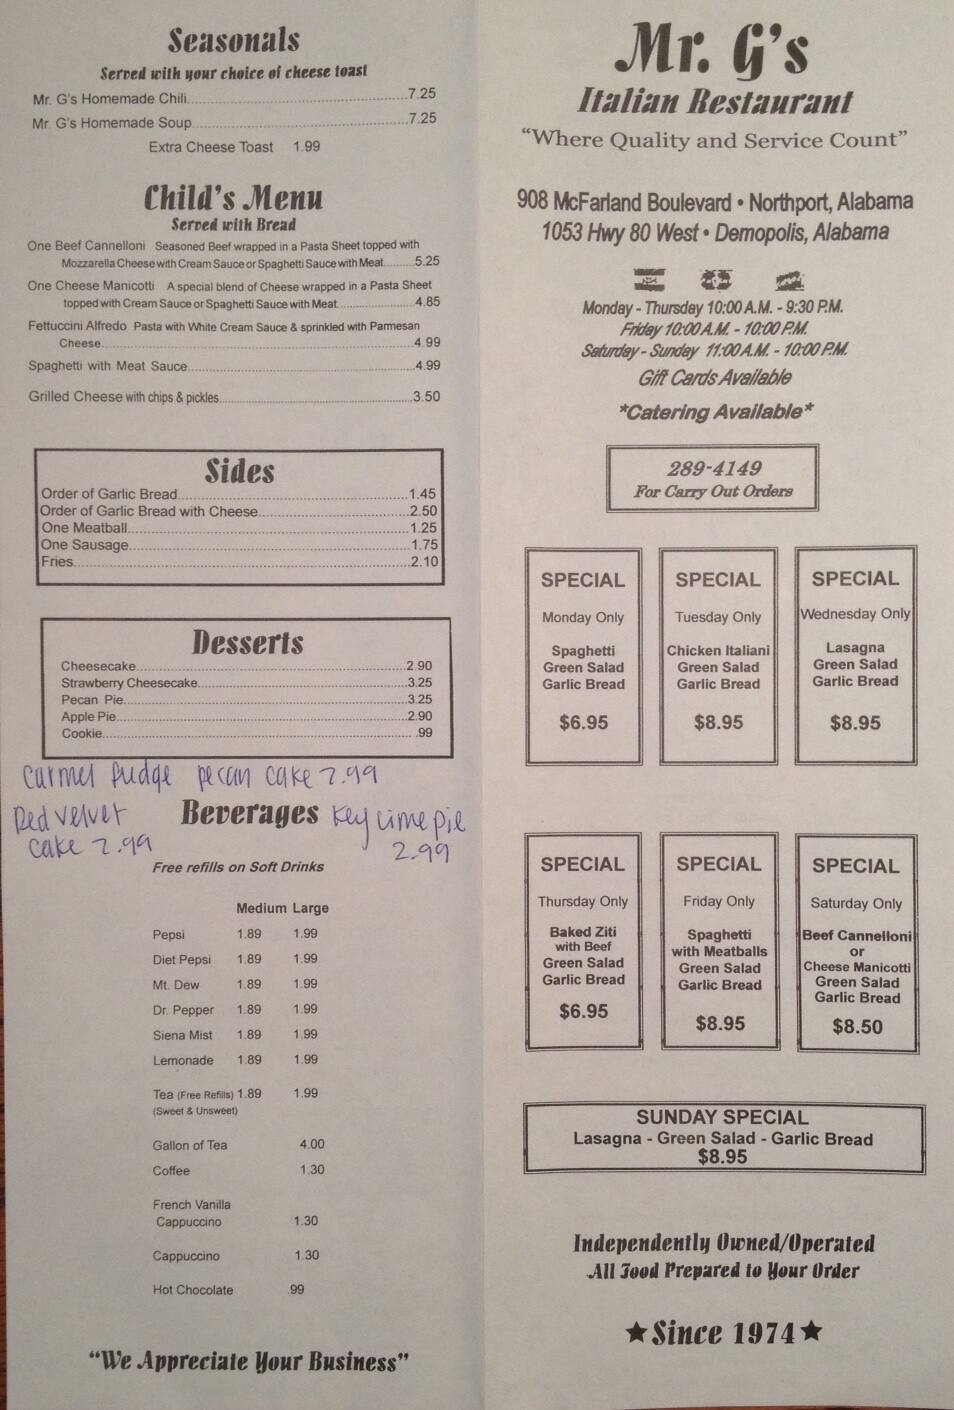 Seasonals
Served with your choice of cheese toast
Mr. G's Homemade Chili 7.25
Mr. G's Homemade Soup 7.25
Extra Cheese Toast 1.99
Child's Menu
Served with Bread
One Beef Cannelloni Seasoned Beef wrapped in a Pasta Sheet topped with
Mozzarella Cheese with Cream Sauce or Spaghetti Sauce with Meat 5.25
One Cheese Manicotti A special blend of Cheese wrapped in a Pasta Sheet
topped with Cream Sauce or Spaghetti Sauce with Meat 4.85
Fettuccini Alfredo Pasta with White Cream Sauce & sprinkled with Parmesan
Cheese 4.99
Spaghetti with Meat Sauce 4.99
Grilled Cheese with chips & pickles 3.50
Sides
Order of Garlic Bread 1.45
Order of Garlic Bread with Cheese 2.50
One Meatball 1.25
One Sausage 1.75
Fries 2.10
Desserts
Cheesecake 2.90
Strawberry Cheesecake 3.25
Pecan Pie 3.25
Apple Pie 2.90
Cookie .99
Carmel fudge pecan cake 2.99
Red velvet
cake 2.99
Key Lime pie
2.99
Beverages
Free refills on Soft Drinks
Medium Large
Pepsi 1.89 1.99
Diet Pepsi 1.89 1.99
Mt. Dew 1.89 1.99
Dr. Pepper 1.89 1.99
Siena Mist 1.89 1.99
Lemonade 1.89 1.99
Tea (Free Refills) 1.89 1.99
(Sweet & Unsweet)
Gallon of Tea 4.00
Coffee 1.30
French Vanilla
Cappuccino 1.30
Cappuccino 1.30
Hot Chocolate .99
"We Appreciate Your Business"
Mr. G's
Italian Restaurant
"Where Quality and Service Count"
908 McFarland Boulevard • Northport, Alabama
1053 Hwy 80 West • Demopolis, Alabama
Monday - Thursday 10:00 A.M. - 9:30 P.M.
Friday 10:00 A.M. - 10:00 P.M.
Saturday - Sunday 11:00 A.M. - 10:00 P.M.
Gift Cards Available
*Catering Available*
289-4149
For Carry Out Orders
SPECIAL
Monday Only
Spaghetti
Green Salad
Garlic Bread
$6.95
SPECIAL
Tuesday Only
Chicken Italiani
Green Salad
Garlic Bread
$8.95
SPECIAL
Wednesday Only
Lasagna
Green Salad
Garlic Bread
$8.95
SPECIAL
Thursday Only
Baked Ziti
with Beef
Green Salad
Garlic Bread
$6.95
SPECIAL
Friday Only
Spaghetti
with Meatballs
Green Salad
Garlic Bread
$8.95
SPECIAL
Saturday Only
Beef Cannelloni
or
Cheese Manicotti
Green Salad
Garlic Bread
$8.50
SUNDAY SPECIAL
Lasagna - Green Salad - Garlic Bread
$8.95
Independently Owned/Operated
All Food Prepared to Your Order
★Since 1974★